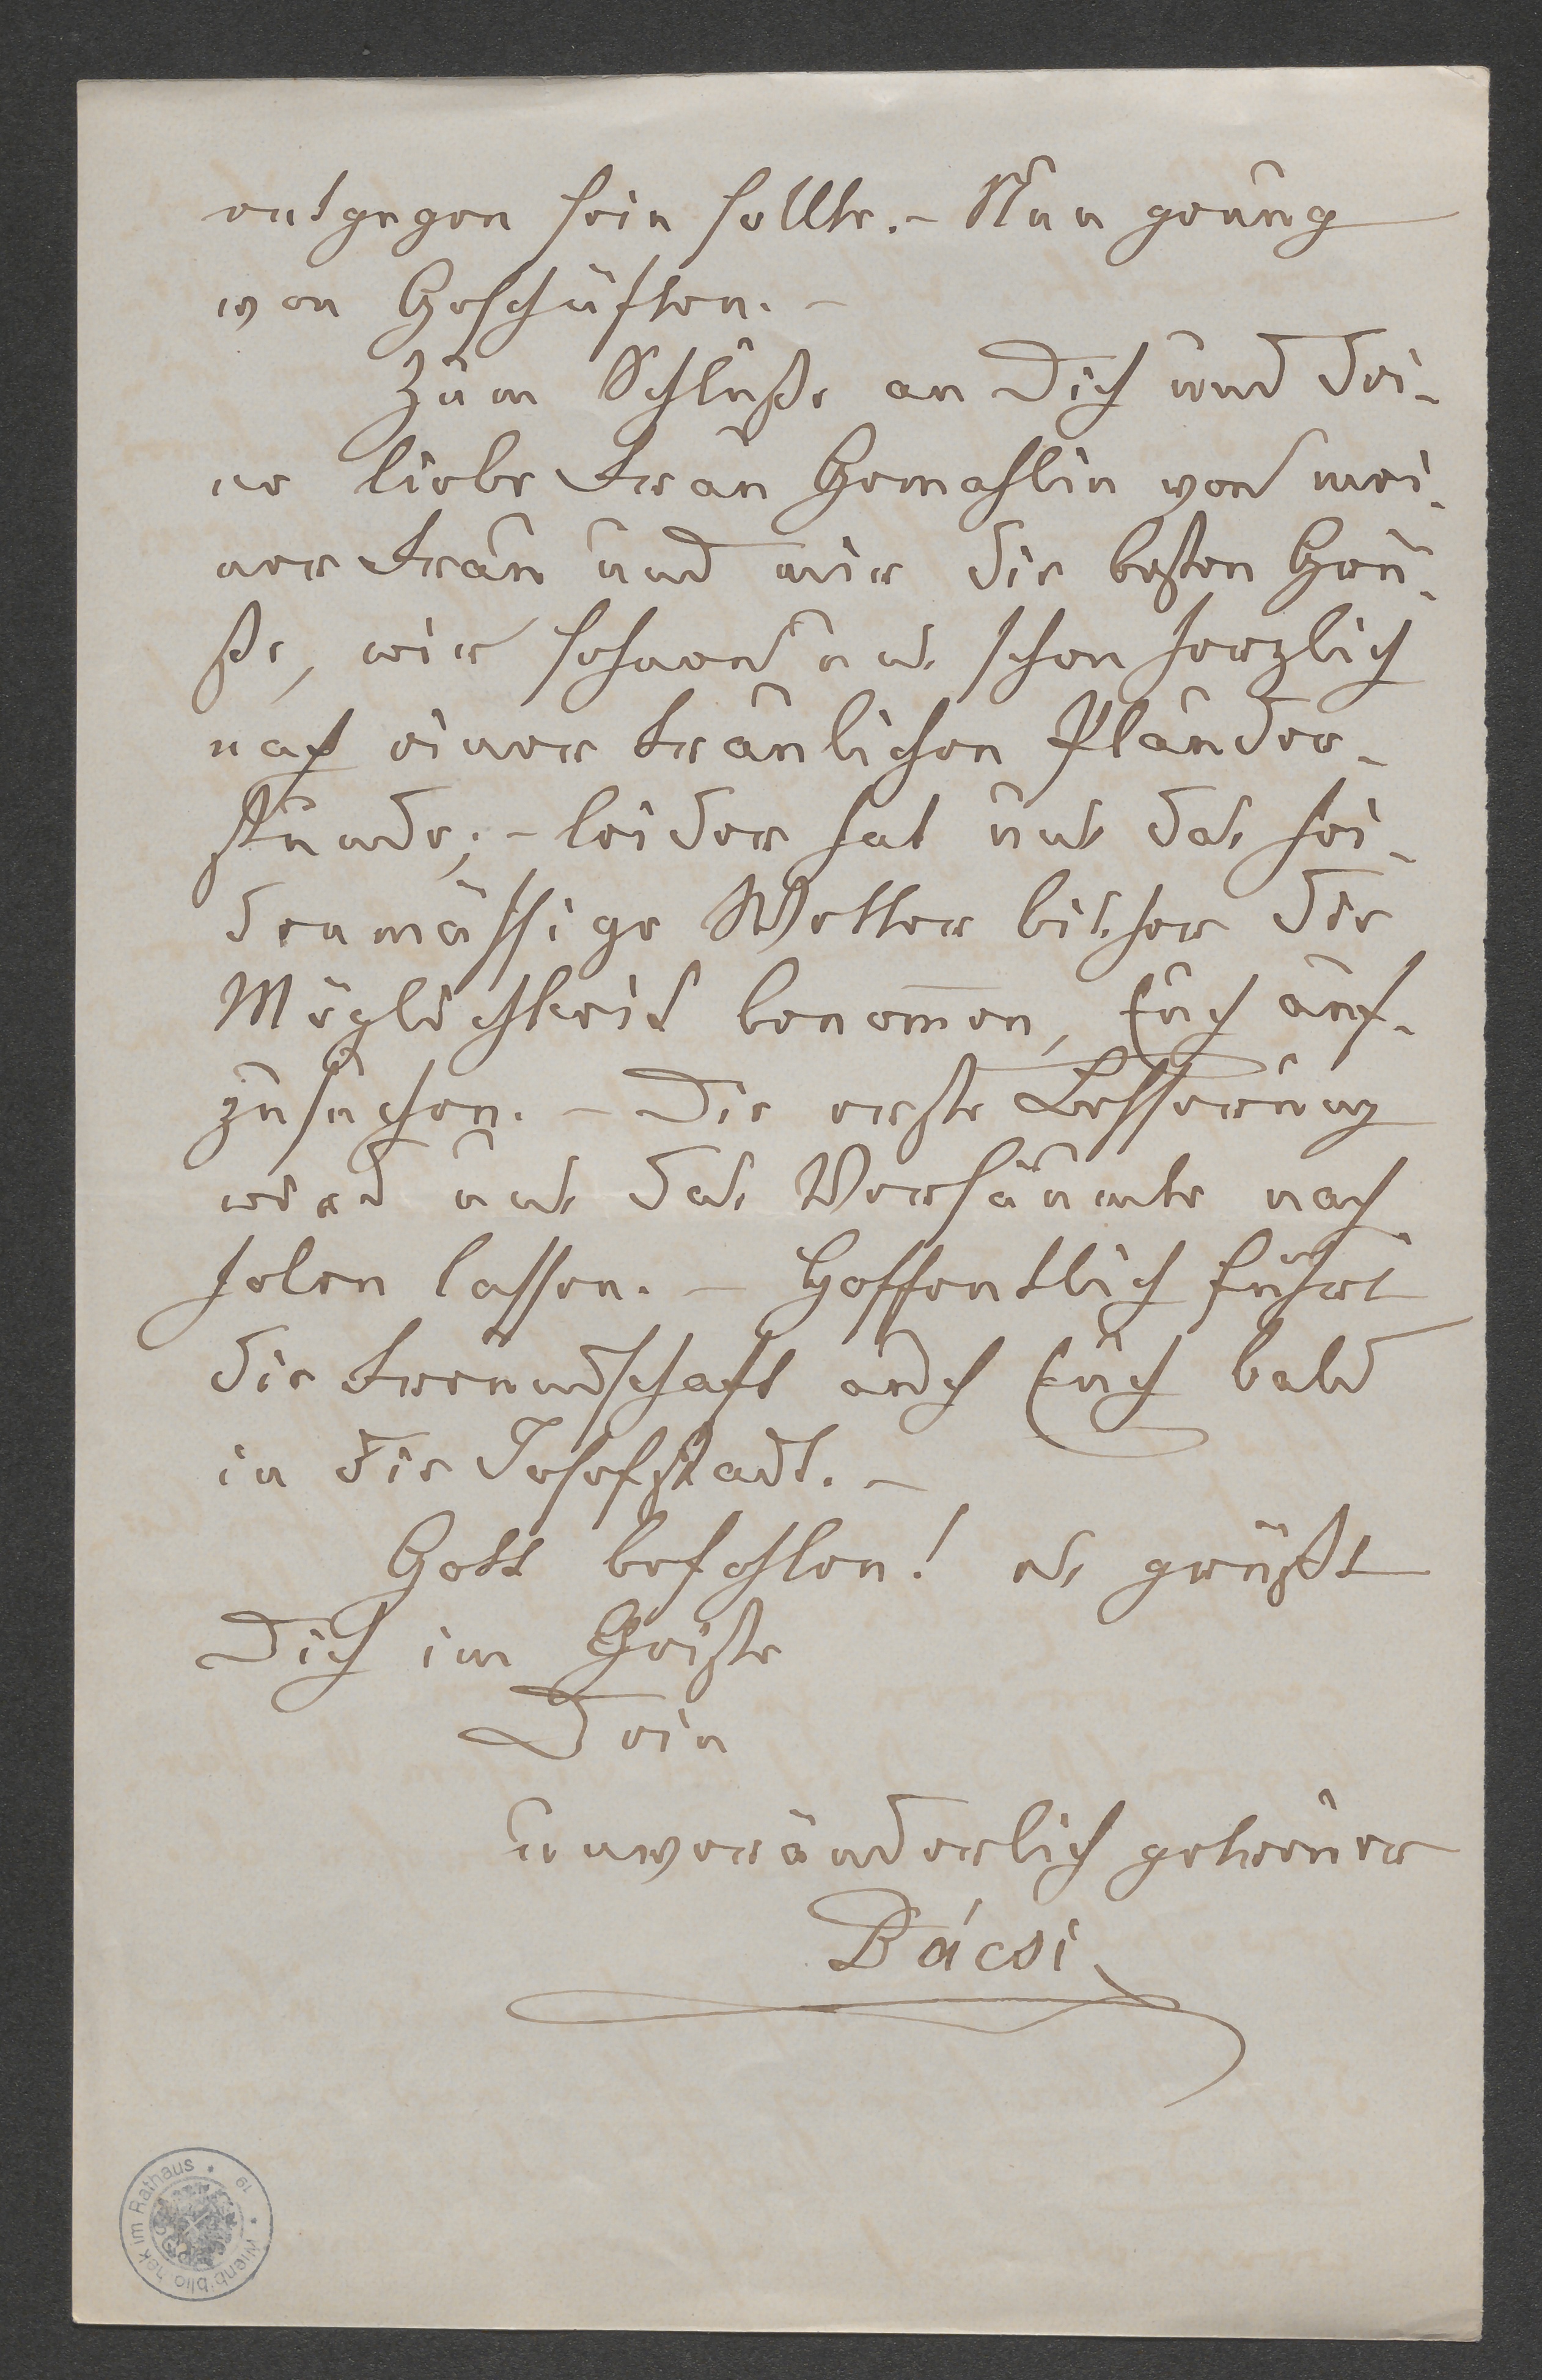 entgegen sein sollte. – Nun genug
von Geschäften. –
Zum Schluße an Dich und Dei-
ne liebe Frau Gemahlin von mei-
ner Frau und mir die besten Grü-
ße, wir sehnen uns schon herzlich
nach einer traulichen Plauder-
stunde; – leider hat uns das hei-
denmässige Wetter bisher die
Möglichkeit benom̄en, Euch auf-
zusuchen. – Die erste Besserung
wird uns das Versäumte nach
holen lassen. – Hoffentlich führt
die Freundschaft auch Euch bald
in die Josefstadt. –
Gott befohlen! es grüßt
Dich im Geiste
Dein
unveränderlich getreuer
Bácsi
Wienbibliothek im Rathaus
19